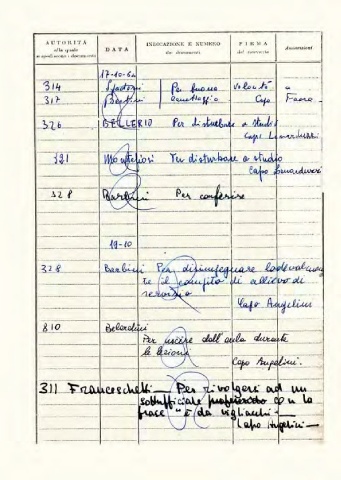 AUTORITÀ
alla quale
si spediscono i documenti
DATA
INDICAZIONE E NUMERO
dei documenti
FIRMA
del ricevente
Annotazioni
17-10-64
314 Per buona volontà e
317 Bertini Capo Faora
326 BELLERIO Per disturbare a studio
Capo
321 Per disturbare a studio
Capo
328 Barbini Per conferire
19-10
328 Barbini Per disimpegnare lodevolmen
te il compito di allievo di
servizio
Capo Angelini
810 Belardini
Per uscire dall'aula durante
la lezione
Capo Angelini.
311 Franceschetti — Per rivolgersi ad un
sottufficiale con la
frase "è da vigliacchi —
Capo Angelini —